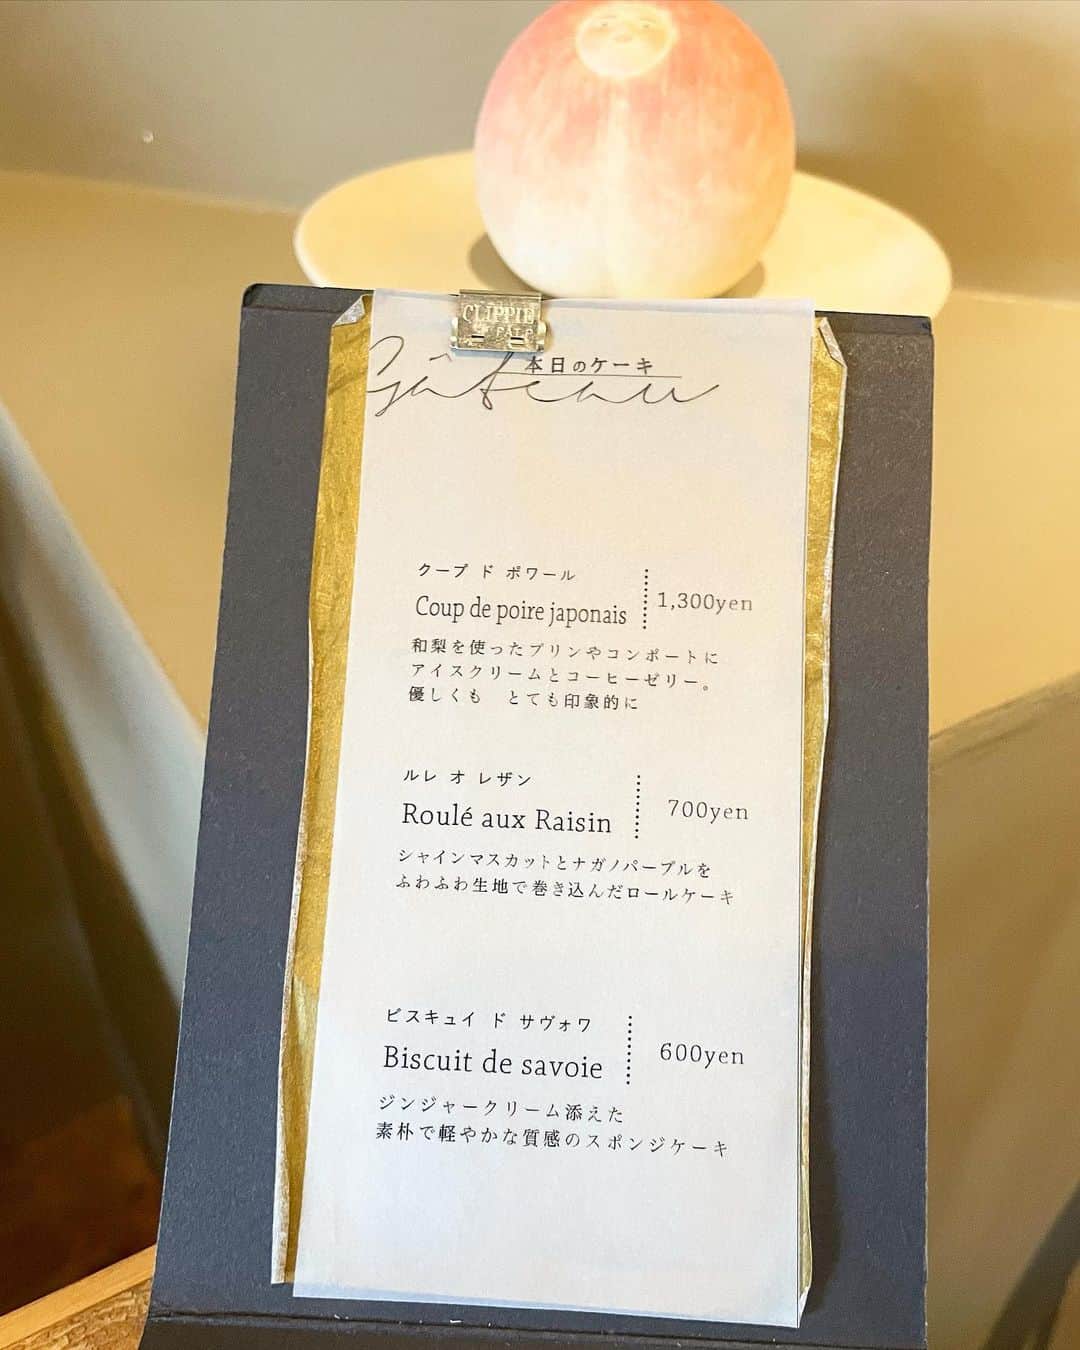 CLIPPIE
PALP
本日のケーキ
Gâteau
クープ ド ポワール
Coup de poire japonais
1,300yen
和梨を使ったプリンやコンポートに
アイスクリームとコーヒーゼリー。
優しくも　とても印象的に
ルレ オ レザン
Roulé aux Raisin
700yen
シャインマスカットとナガノパープルを
ふわふわ生地で巻き込んだロールケーキ
ビスキュイ ド サヴォワ
Biscuit de savoie
600yen
ジンジャークリーム添えた
素朴で軽やかな質感のスポンジケーキ